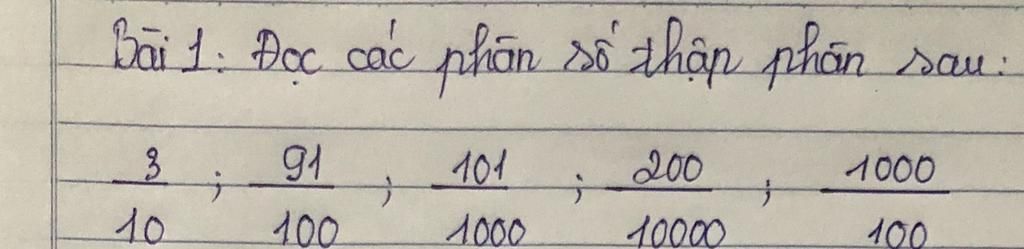 Bài 1: Đọc các phân số thập phân sau:
3/10 ; 91/100 ; 101/1000 ; 200/10000 ; 1000/100